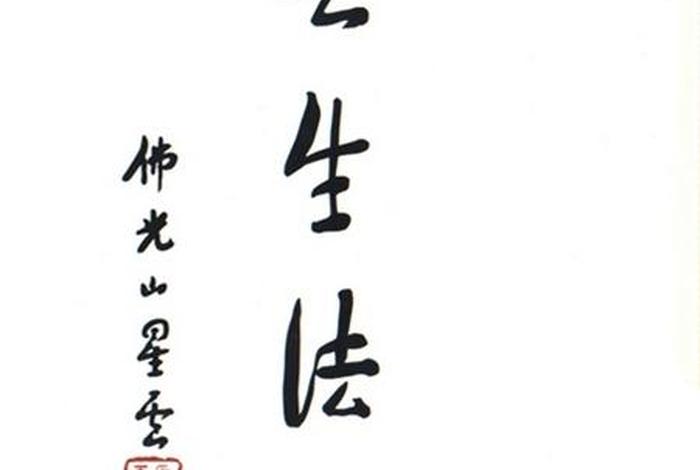 生法
佛光山星雲